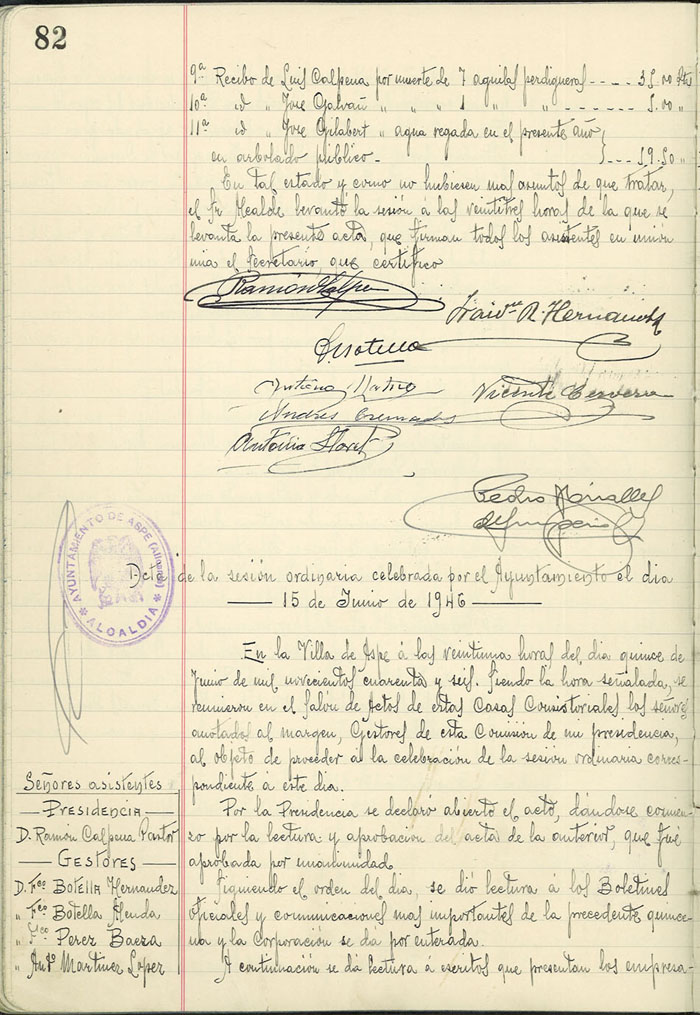 82
9ª Recibo de Luis Calpena por muerte de 7 aguilas perdigueras ---- 35.00 Pts
10ª id " José Galvañ " " " 1 " " ------ 5.00 "
11ª id " José Gilabert " agua regada en el presente año
en arbolado público - } --- 19.50 "
En tal estado y como no hubiesen mas asuntos de que tratar,
el Sr Alcalde levantó la sesión á las veintitres horas de la que se
levanta la presente acta, que firman todos los asistentes en unión
mia el Secretario, que certifico
Ramón Calpe
R. Hernandez
Botella
Antonio Martinez
Vicente Cervera
Andrés Cremades
Antonio Lloret
Pedro Miralles
AYUNTAMIENTO DE ASPE (Alicante)
* ALCALDIA *
Acta de la sesión ordinaria celebrada por el Ayuntamiento el dia
— 15 de Junio de 1946 —
En la Villa de Aspe á las veintiuna horas del dia quince de
Junio de mil novecientos cuarenta y seis. Siendo la hora señalada, se
reunieron en el Salón de Actos de estas Casas Consistoriales los señores
anotados al margen, Gestores de esta Comisión de mi presidencia,
al objeto de proceder á la celebración de la sesión ordinaria corres-
pondiente á este dia.
Por la Presidencia se declaró abierto el acto, dándose comien-
zo por la lectura y aprobación del acta de la anterior, que fué
aprobada por unanimidad.
Siguiendo el orden del dia, se dió lectura á los Boletines
oficiales y comunicaciones mas importantes de la precedente quince-
na y la Corporación se da por enterada.
A continuación se da lectura á escritos que presentan los empresa-
Señores asistentes
— PRESIDENCIA —
D. Ramón Calpena Pastor
— GESTORES —
D. Fco Botella Hernandez
" Fco Botella Alenda
" Fco Perez Baeza
" Antº Martinez Lopez